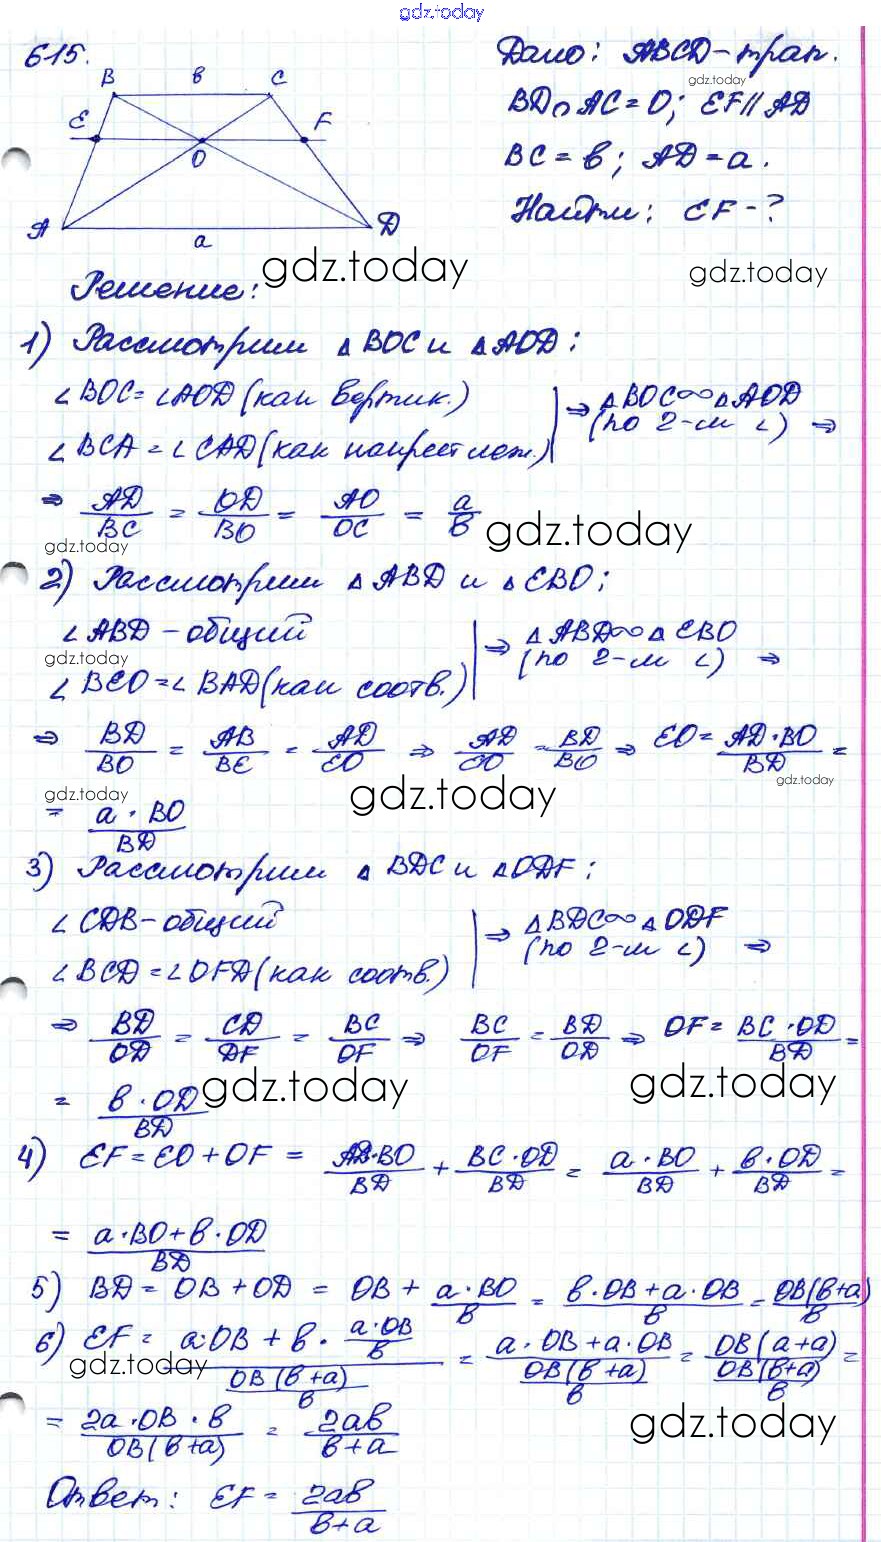 gdz.today
615.
B в C
E F
O
A Д
a
Дано: ABCD-трап.
gdz.today
BD∩AC=O; EF∥AD
BC=в; AD=a.
Найти: EF-?
gdz.today gdz.today
Решение:
1) Рассмотрим △BOC и △AOD:
∠BOC=∠AOD (как вертик.)
∠BCA=∠CAD (как накрест леж.)
⇒ △BOC∞△AOD
(по 2-м ∠) ⇒
⇒ AD/BC = OD/BO = AO/OC = a/в
gdz.today
gdz.today
2) Рассмотрим △ABD и △EBO;
∠ABD - общий
gdz.today
∠BEO=∠BAD (как соотв.)
⇒ △ABD∞△EBO
(по 2-м ∠) ⇒
⇒ BD/BO = AB/BE = AD/EO ⇒ AD/EO = BD/BO ⇒ EO = AD·BO/BD =
gdz.today
gdz.today gdz.today
= a·BO/BD
3) Рассмотрим △BDC и △ODF:
∠CDB-общий
∠BCD=∠OFD (как соотв.)
⇒ △BDC∞△ODF
(по 2-м ∠) ⇒
⇒ BD/OD = CD/DF = BC/OF ⇒ BC/OF = BD/OD ⇒ OF = BC·OD/BD =
gdz.today gdz.today
= в·OD/BD
4) EF=EO+OF = AD·BO/BD + BC·OD/BD = a·BO/BD + в·OD/BD =
= a·BO+в·OD/BD
5) BD = OB+OD = OB + a·BO/в = в·OB+a·OB/в = OB(в+a)/в
6) EF = a·OB + в· a·OB/в / OB(в+a)/в = a·OB+a·OB / OB(в+a)/в = OB(a+a) / OB(в+a)/в =
gdz.today
= 2a·OB·в/OB(в+a) = 2aв/в+a
gdz.today
Ответ: EF = 2aв/в+a